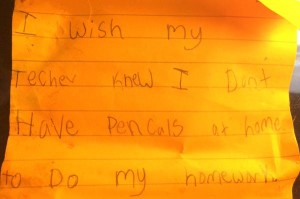 I wish my
Techer knew I Dont
Have Pencals at home
to Do my homework.